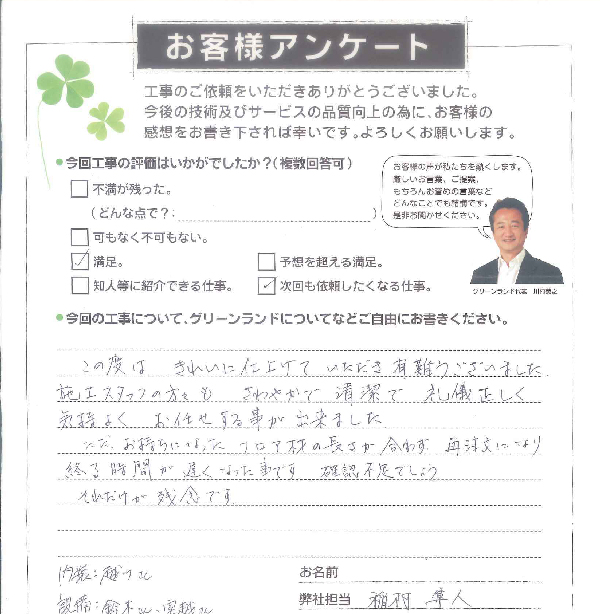 お客様アンケート
工事のご依頼をいただきありがとうございました。
今後の技術及びサービスの品質向上の為に、お客様の
感想をお書き下されば幸いです。よろしくお願いします。
●今回工事の評価はいかがでしたか?(複数回答可)
不満が残った。
(どんな点で?: )
可もなく不可もない。
満足。 予想を超える満足。
知人等に紹介できる仕事。 次回も依頼したくなる仕事。
お客様の声が私たちを熱くします。
厳しいお言葉、ご提案、
もちろんお誉めの言葉など
どんなことでも結構です。
是非お聞かせください。
グリーンランド代表
●今回の工事について、グリーンランドについてなどご自由にお書きください。
この度は きれいに仕上げて いただき 有難うございました
施工スタッフの方々も さわやかで 清潔で 礼儀正しく
気持よく お任せする事が 出来ました
ただ、お持ちになった フロア材の長さが 合わず 再注文により
終る時間が 遅くなった事です 確認不足でしょう
それだけが 残念です
内装:
設備:鈴木
お名前
弊社担当 稲村 隼人